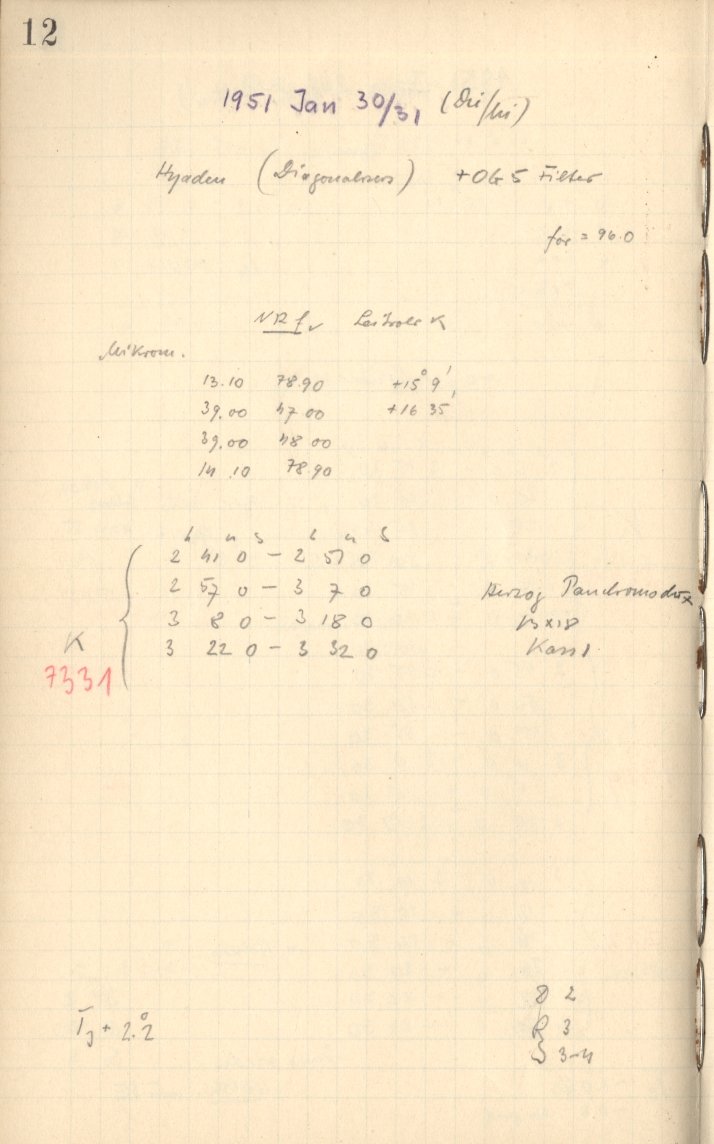 12
1951 Jan 30/31 (Dri/hi)
Hyaden (Diagonalsers) + OG 5 Filter
for = 96.0
Leitrohr K
Mikrom.
13.10 78.90 +15° 9'
39.00 47 00 +16 35'
39.00 48 00
14.10 78.90
h m s h m s
2 41 0 - 2 51 0
2 57 0 - 3 7 0 Herzog
3 8 0 - 3 18 0 13x18
K 3 22 0 - 3 32 0 Kass 1
7331
D 2
R 3
+ 2.°2
S 3-4